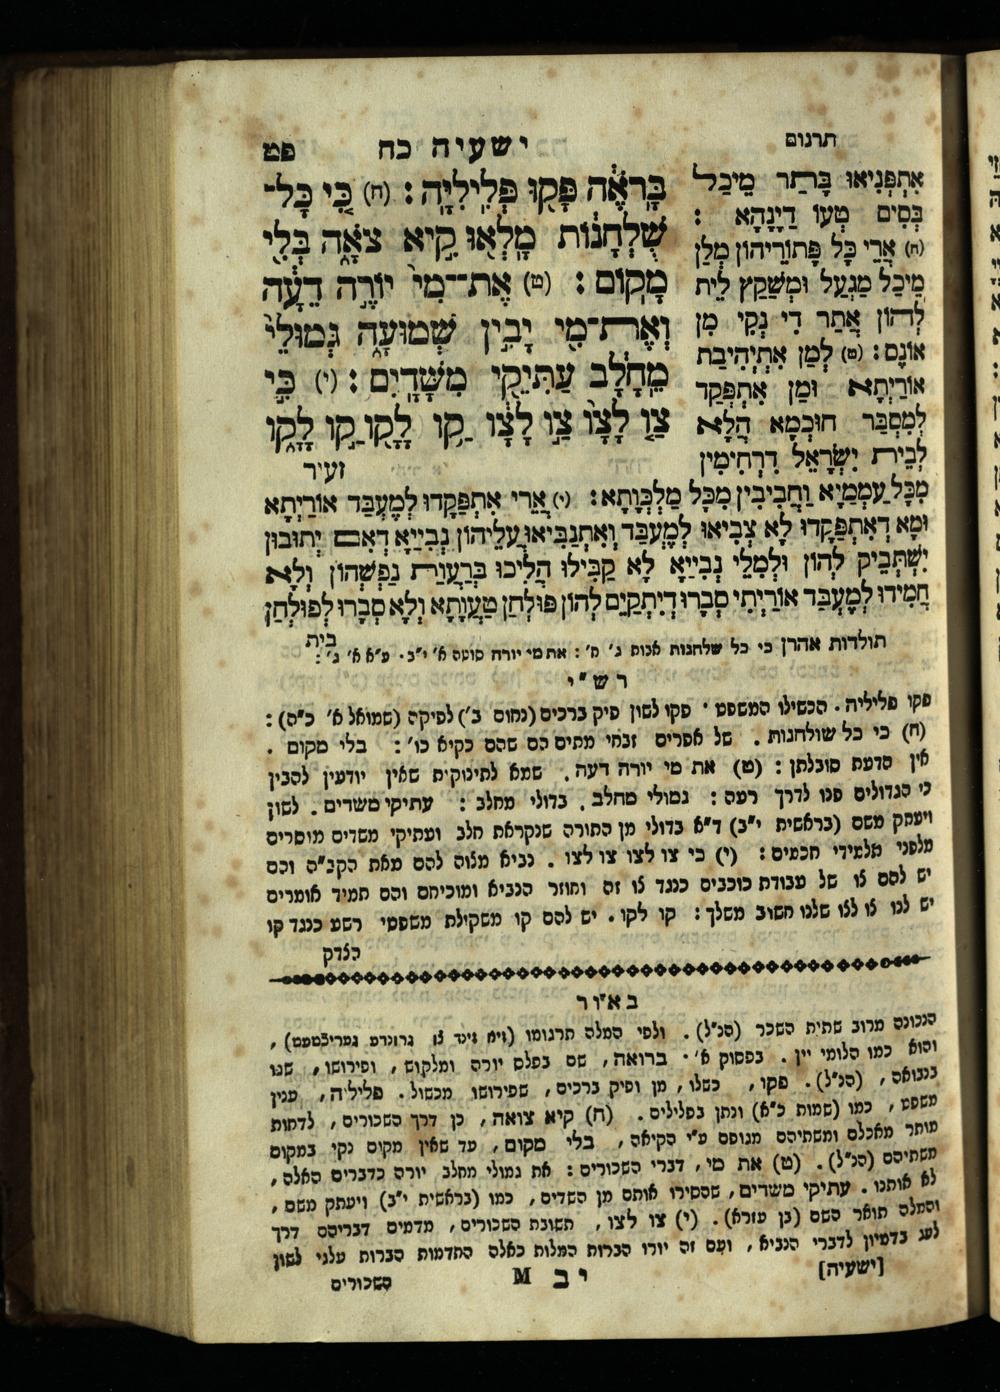 תרגום
ישעיה כח
פט
בָּרֹאֶה פָּקוּ פְּלִילִיָּה׃ (ח) כִּי כָּל־
שֻׁלְחָנוֹת מָלְאוּ קִיא צֹאָה בְּלִי
מָקוֹם׃ (ט) אֶת־מִי יוֹרֶה דֵעָה
וְאֶת־מִי יָבִין שְׁמוּעָה גְּמוּלֵי
מֵחָלָב עַתִּיקֵי מִשָּׁדָיִם׃ (י) כִּי
צַו לָצָו צַו לָצָו קַו לָקָו קַו לָקָו
זעיר
אִתְפְּנִיאוּ בָּתַר מֵיכַל
בְּסִים טְעוֹ דַיָנָהָא :
(ח) אֲרֵי כָּל פָּתוֹרֵיהוֹן מְלַן
מֵיכַל מְגַעַל וּמְשַׁקַץ לֵית
לְהוֹן אֲתַר דִי נְקֵי מִן
אוֹנֶם : (ט) לְמַן אִתְיְהִיבַת
אוֹרַיְתָא וּמַן אִתְפְּקַד
לְמִסְבַּר חוּכְמָא הֲלָא
לְבֵית יִשְׂרָאֵל דִרְחִימִין
מִכָּל עַמְמַיָא וַחֲבִיבִין מִכָּל מַלְכְּוָתָא : (י) אֲרֵי אִתְפַּקָדוּ לְמֶעְבַּד אוֹרַיְתָא
וּמָא דְאִתְפְּקָדוּ לָא צְבִיאוּ לְמֶעְבַּד וְאִתְנַבִּיאוּ עֲלֵיהוֹן נְבִיַיָא דְאִם יְתוּבוּן
יִשְׁתְּבֵיק לְהוֹן וּלְמִלֵי נְבִיַיָא לָא קַבִּילוּ הַלִיכוּ בִּרְעוּת נַפְשְׁהוֹן וְלָא
חֲמִידוּ לְמֶעְבַּד אוֹרַיְתִי סְבָרוּ דְיִתְקַיֵם לְהוֹן פּוּלְחַן טַעֲוָתָא וְלָא סְבָרוּ לְפוּלְחַן
בית
תולדות אהרן כי כל שלחנות אבות ג׳ מ׳ : את מי יורה סוטה א׳ י״ב. ע״א א׳ ג׳ :
רש״י
פקו פליליה. הכשילו המשפט. פקו לשון פיק ברכים (נחום ב׳) לפיקה (שמואל א׳ כ״ה) :
(ח) כי כל שולחנות. של אפרים זבחי מתים הם שהם כקיא כו׳ : בלי מקום.
אין הדעת סובלתן : (ט) את מי יורה דעה. שמא לתינוקית שאין יודעין להבין
כי הגדולים פנו לדרך רעה : גמולי מחלב. בדולי מחלב : עתיקי משדים. לשון
ויעתק משם (בראשית י״ב) ד״א בדולי מן התורה שנקראת חלב ועתיקי משדים מוסרים
מלפני תלמידי חכמים : (י) כי צו לצו צו לצו. נביא מצוה להם מאת הקב״ה והם
יש להם צו של עבודת כוכבים כנגד צו זה וחוזר הנביא ומוכיחם והם תמיד אומרים
יש לנו צו לצו שלנו חשוב משלך : קו לקו. יש להם קו משקולת משפטי רשע כנגד קו
הצדק
באור
הנכונה מרוב שתית השכר (הנ״ל). ולפי המלה תרגומו (זיא זינד צו גרונדע געריכטעט),
והוא כמו הלומי יין. בפסוק א׳. ברואה, שם בפלס יורה ומלקוש, ופירושו, שגו
בנבואה, (הנ״ל). פקו, כשלו, מן ופיק ברכים, שפירושו מכשול. פליליה, ענין
משפט, כמו (שמות כ״א) ונתן בפלילים. (ח) קיא צואה, כן דרך השכורים, לדחות
מותר מאכלם ומשתיהם מגופם ע״י הקיאה, בלי מקום, עד שאין מקום נקי במקום
משתיהם (הנ״ל). (ט) את מי, דברי השכורים : את גמולי מחלב יורה כדברים האלה,
לא אותנו. עתיקי משדים, שהסירו אותם מן השדים, כמו (בראשית י״ב) ויעתק משם,
והמלה תואר השם (בן עזרא). (י) צו לצו, תשובת השכורים, מדמים דבריהם דרך
לעג בדמיון לדברי הנביא, ועם זה יורו הברות המלות כאלה התדמות הברות עלגי לשון
[ישעיה]
יב M
השכורים